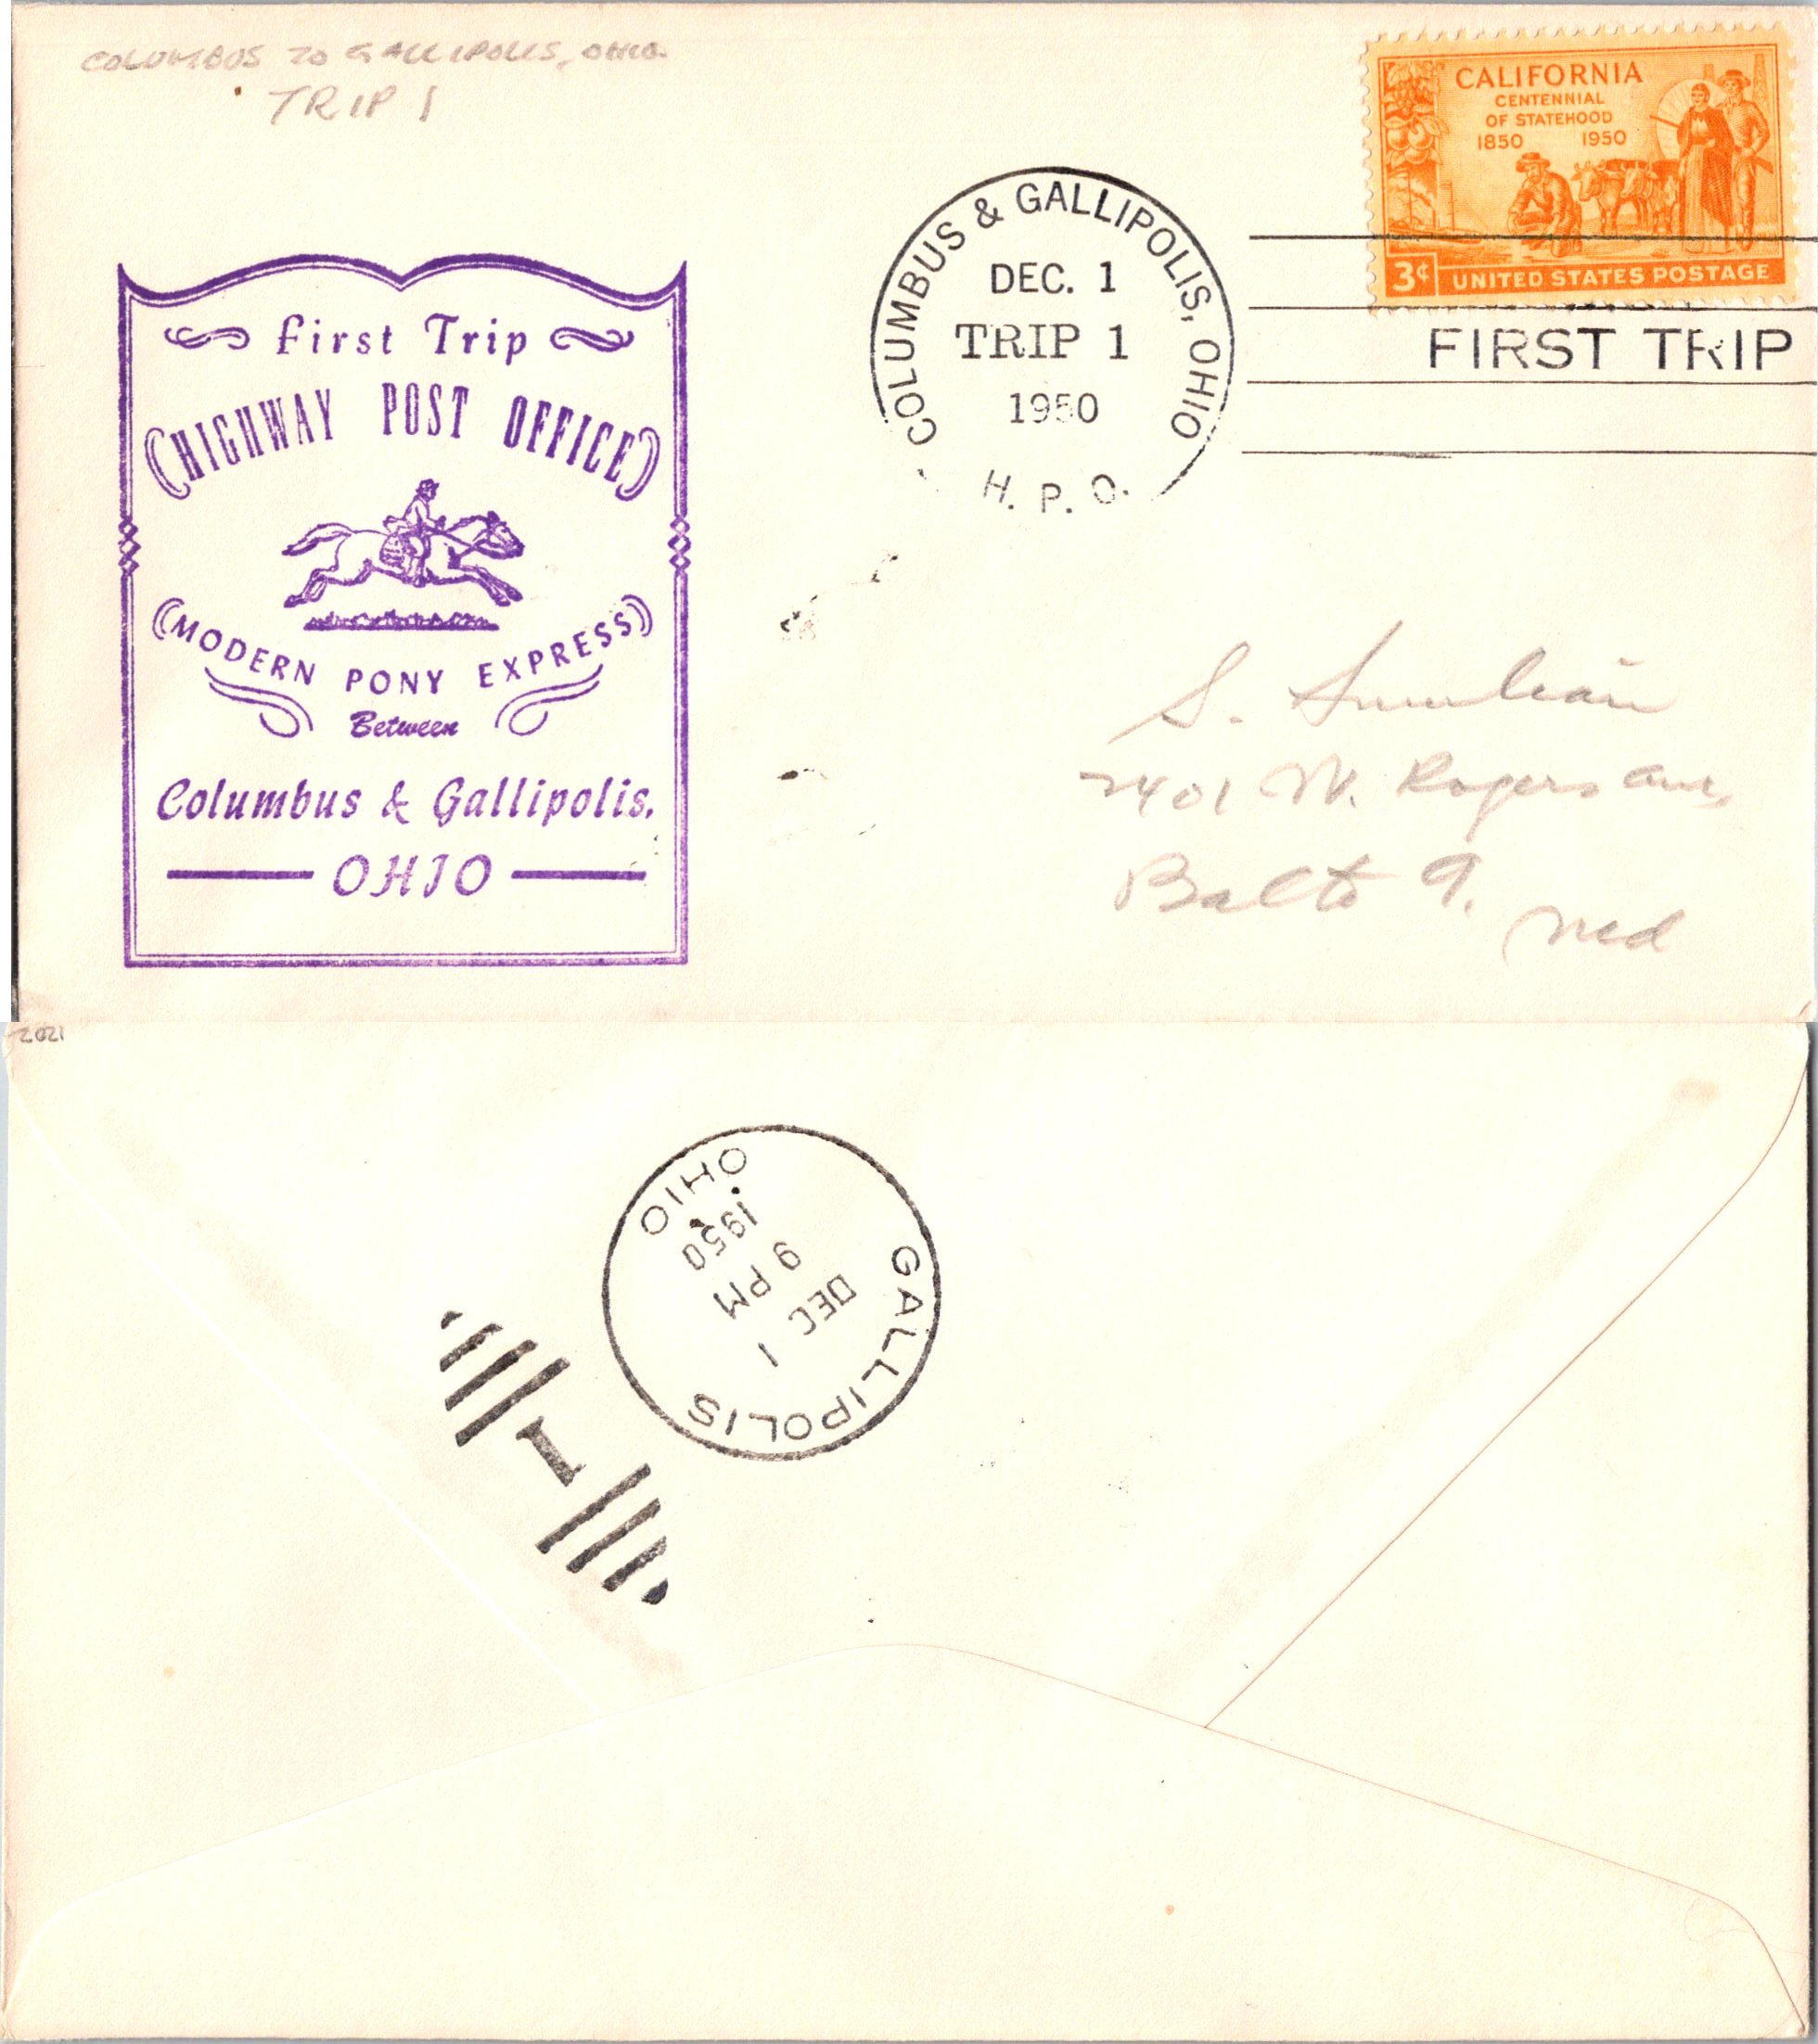 COLUMBUS TO GALLIPOLIS, OHIO.
TRIP 1
CALIFORNIA
CENTENNIAL
OF STATEHOOD
1850 1950
3¢ UNITED STATES POSTAGE
COLUMBUS & GALLIPOLIS, OHIO
DEC. 1
TRIP 1
1950
H. P. O.
FIRST TRIP
First Trip
HIGHWAY POST OFFICE
MODERN PONY EXPRESS
Between
Columbus & Gallipolis,
OHIO
S.
2401 W. Rogers Ave,
Balto 9.
Md
2021
GALLIPOLIS
DEC 1
9 PM
1950
OHIO
1